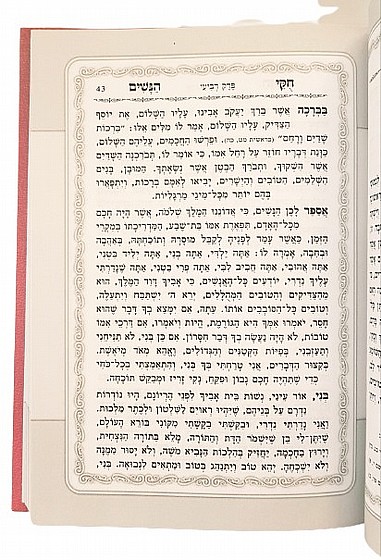 חֻקֵּי פֶּרֶק רְבִיעִי הַנָּשִׁים 43
בַּבְּרָכָה אֲשֶׁר בֵּרַךְ יַעֲקֹב אָבִינוּ, עָלָיו הַשָּׁלוֹם, אֶת יוֹסֵף
הַצַּדִּיק, עָלָיו הַשָּׁלוֹם, אָמַר לוֹ מִלִּים אֵלּוּ: "בִּרְכוֹת
שָׁדַיִם וָרָחַם" (בראשית מט, כה), וּפֵרְשׁוּ הַחֲכָמִים, עֲלֵיהֶם הַשָּׁלוֹם,
כַּוָּנַת דְּבָרָיו חוֹזֵר עַל רָחֵל אִמּוֹ, כִּי אוֹמֵר לוֹ, תְּבֹרַכְנָה הַשָּׁדַיִם
אֲשֶׁר הִשְׁקוּךָ, וְתִבָּרֵךְ הַבֶּטֶן אֲשֶׁר נְשָׂאַתְךָ, הַמּוּבָן, בָּנִים
הַשְּׁלֵמִים, הַטּוֹבִים וְהַיְשָׁרִים, יָבִיאוּ לְאִמָּם בְּרָכוֹת, וְיִתְפָּאֲרוּ
בָּהֶם יוֹתֵר מִכָּל־מִינֵי מַרְגָּלִיּוֹת.
אֲסַפֵּר לָכֶן הַנָּשִׁים, כִּי אֲדוֹנֵנוּ הַמֶּלֶךְ שְׁלֹמֹה, אֲשֶׁר הָיָה חָכָם
מִכָּל־הָאָדָם, תִּפְאֶרֶת אִמּוֹ בַּת־שֶׁבַע, הַמַּדְרִיכָתוֹ בְּמִקְרֵי
הַזְּמַן, כַּאֲשֶׁר עָמַד לְפָנֶיהָ לְקַבֵּל מוּסָרָהּ וְתוֹכַחְתָּהּ, בְּאַהֲבָה
וּבְחִבָּה, אָמְרָה לוֹ: אַתָּה יַלְדִּי, אַתָּה בְּנִי, אַתָּה יְלִיד בִּטְנִי,
אַתָּה אֲהוּבִי, אַתָּה חֲבִיב לִבִּי, אַתָּה פְּרִי בִּטְנִי, אַתָּה שֶׁנָּדַרְתִּי
עָלֶיךָ נִדְרִי, יוֹדְעִים כָּל־הָאֲנָשִׁים, כִּי אָבִיךָ דָּוִד הַמֶּלֶךְ, הוּא
מֵהַצַּדִּיקִים וְהַטּוֹבִים הַמְהֻלָּלִים, יְרֵא ה' יִשְׁתַּבַּח וְיִתְעַלֶּה,
וְטוֹבִים כָּל־הַסּוֹבְבִים אוֹתוֹ. עַתָּה, אִם יִמָּצֵא בְךָ דָּבָר שֶׁהוּא
חָסֵר, יֹאמְרוּ אִמְּךָ הִיא הַגּוֹרֶמֶת, הֱיוֹת וְיֹאמְרוּ, אִם דַּרְכֵי אִמּוֹ
טוֹבוֹת, לֹא הָיָה נַעֲשָׂה בְךָ דְּבַר חִסָּרוֹן. אִם כֵּן בְּנִי, לֹא תְּנִיחֵנִי
וְתַעַזְבֵנִי, בְּפִיּוֹת הַקְּטַנִּים וְהַגְּדוֹלִים, וְאֵהֵא מֵאָז מְיֹאֶשֶׁת.
בְּקִצּוּר הַדְּבָרִים, אֲנִי טָרַחְתִּי בְךָ בְּנִי, וְהִתְאַמַּצְתִּי בְּכָל־כֹּחִי
כְּדֵי שֶׁתִּהְיֶה חָכָם נָבוֹן וּפִקֵּחַ, נָקִי זָרִיז וּמְבַקֵּשׁ תּוֹכָחָה.
בְּנִי, אוֹר עֵינַי, נְשׁוֹת בֵּית אָבִיךָ לִפְנֵי הֵרְיוֹנָם, הָיוּ נוֹדְרוֹת
נִדְרָם עַל בְּנֵיהֶם, שֶׁיִּהְיוּ רְאוּיִם לְשִׁלְטוֹן וּלְכֶתֶר מַלְכוּת.
וַאֲנִי נָדַרְתִּי נִדְרִי, וּבִקַּשְׁתִּי בַּקָּשָׁתִי מִקּוֹנִי בּוֹרֵא הָעוֹלָם,
שֶׁיִּתֶּן־לִי בֵּן שֶׁיִּשְׁמֹר הַדָּת וְהַתּוֹרָה, מָלֵא בַּתּוֹרָה הַנִּצְחִית,
וְיָרוּץ בַּחָכְמָה, יַחֲזִיק בְּהִלְכוֹת הַנָּבִיא מֹשֶׁה, וְלֹא יָסוּר מִמֶּנָּה
וְלֹא יִשְׁכָּחֶהָ. יְהֵא טוֹב וְיִתְנַהֵג בְּטוֹב וּמַתְאִים לִנְבוּאָה. בְּנִי,